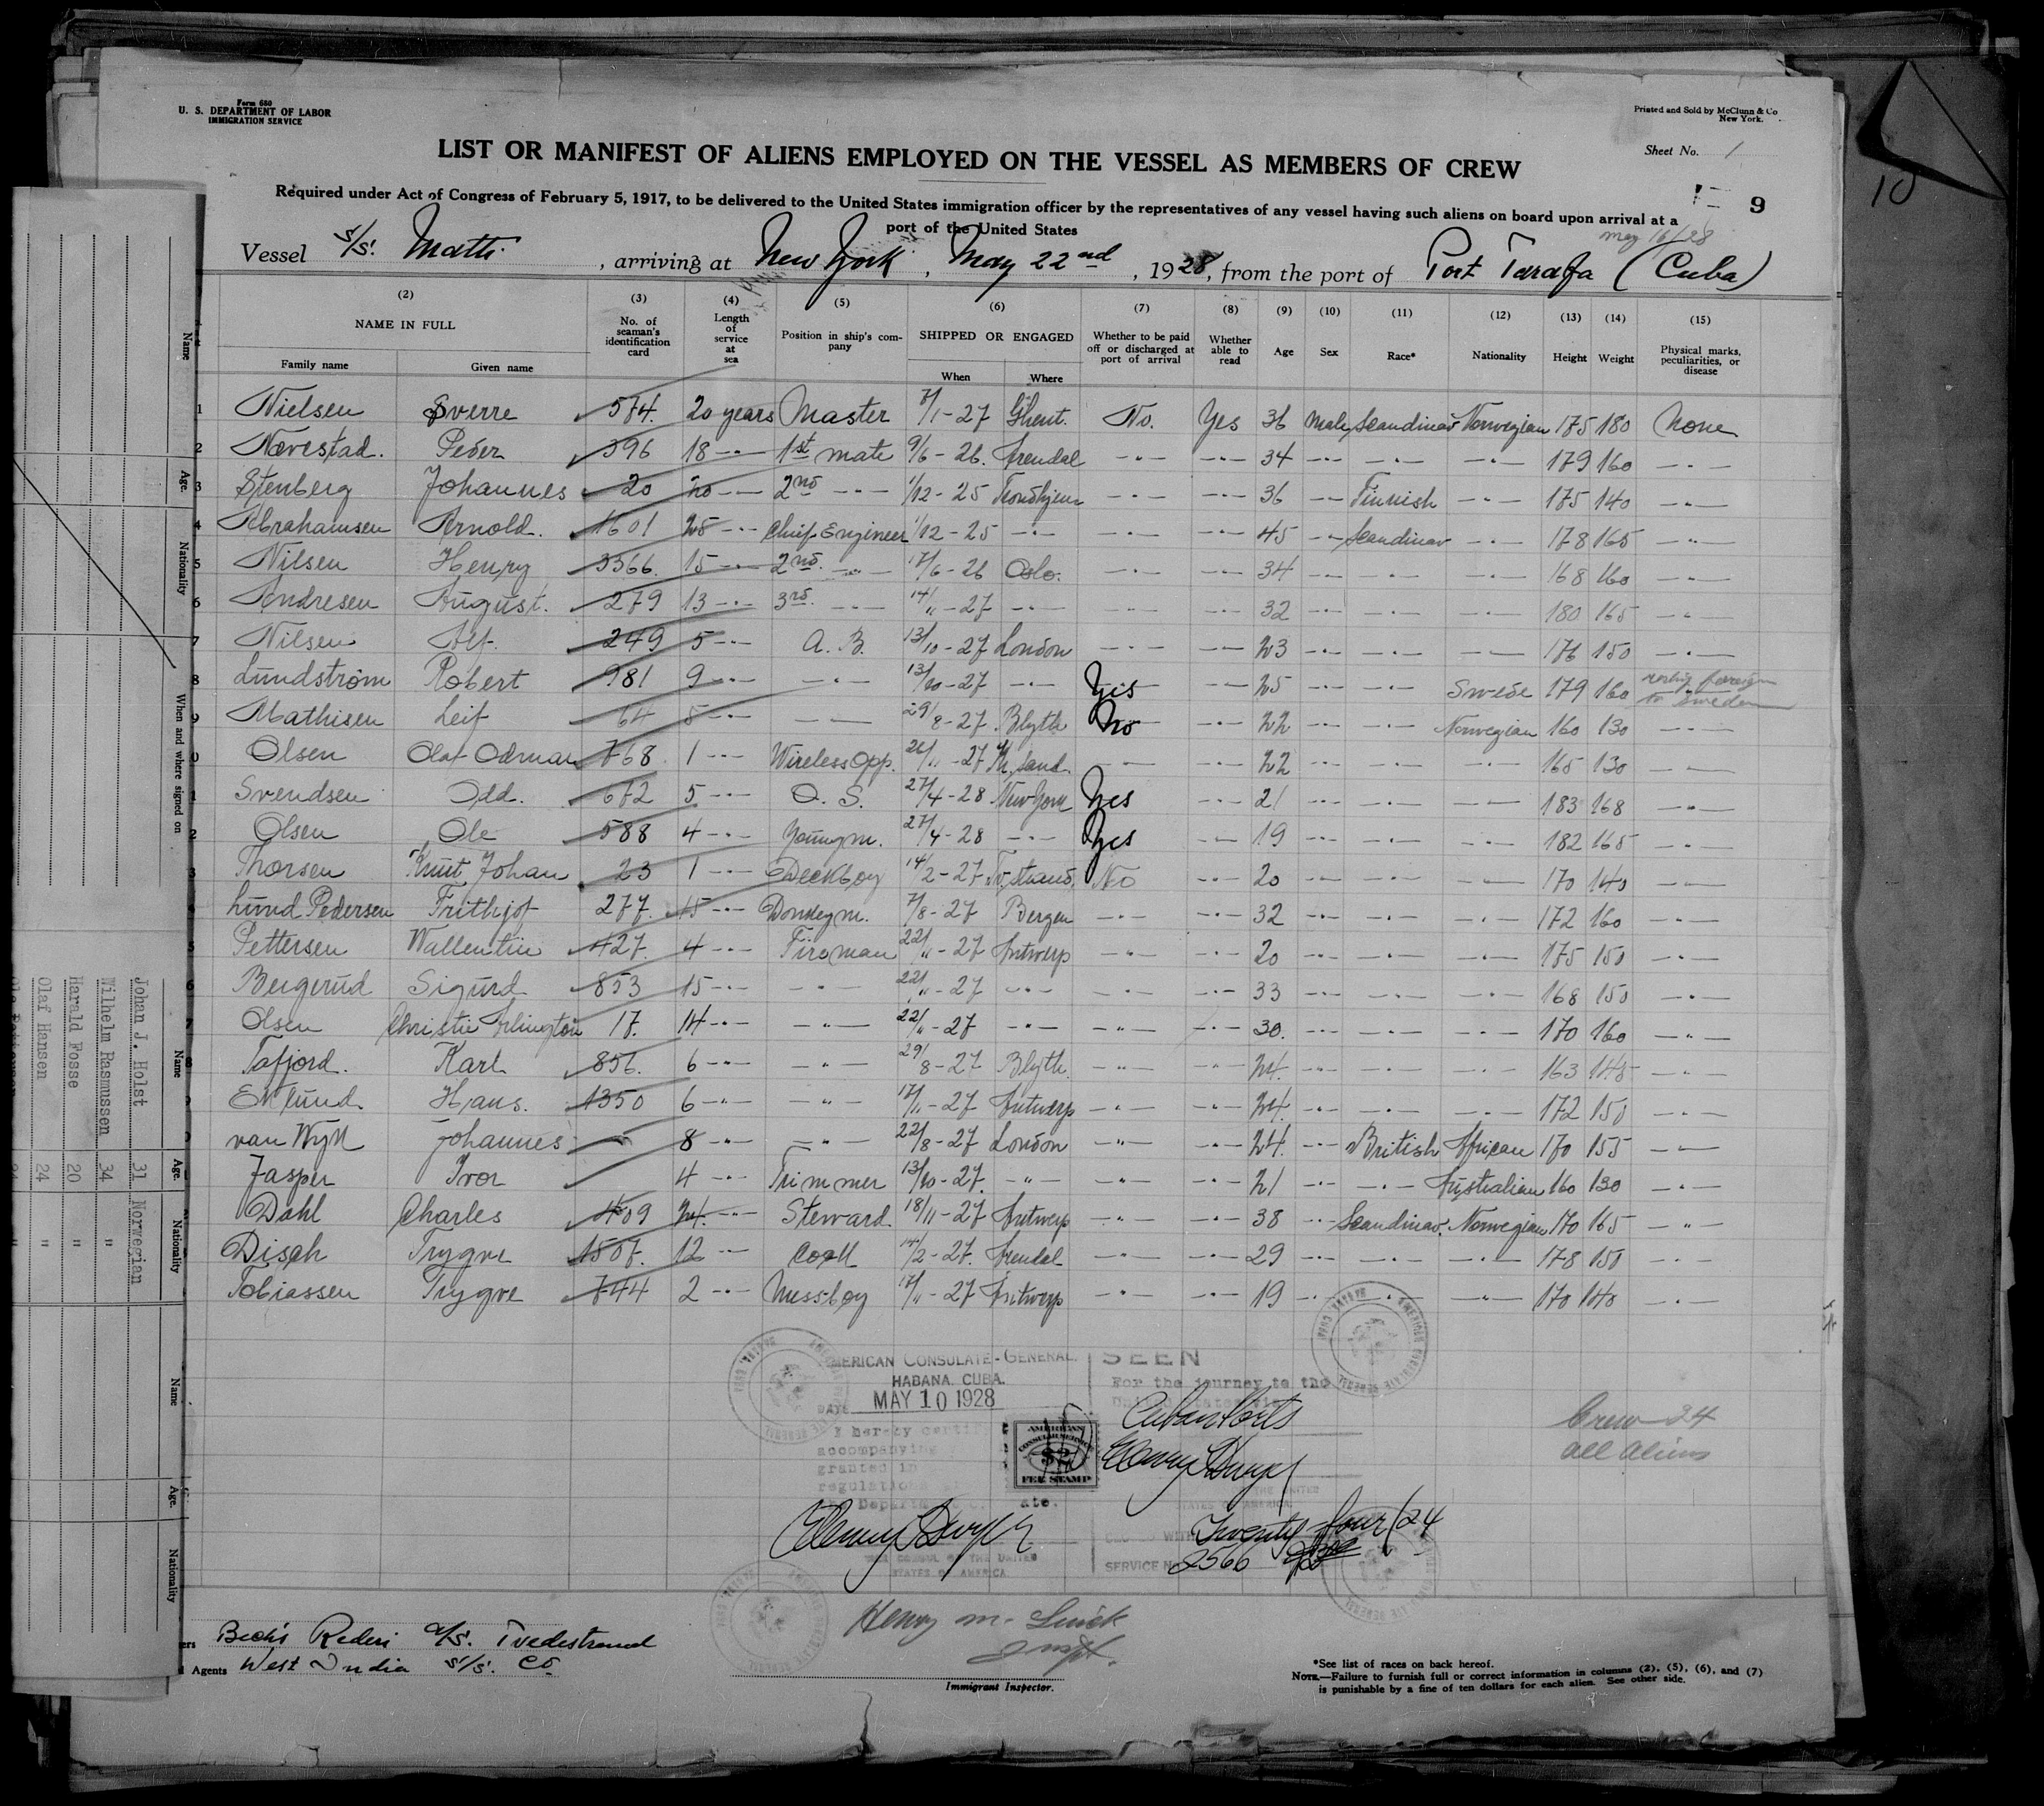 Form 680
U. S. DEPARTMENT OF LABOR
IMMIGRATION SERVICE
Printed and Sold by McClunn & Co
New York.
Sheet No. 1
LIST OR MANIFEST OF ALIENS EMPLOYED ON THE VESSEL AS MEMBERS OF CREW
Required under Act of Congress of February 5, 1917, to be delivered to the United States immigration officer by the representatives of any vessel having such aliens on board upon arrival at a
port of the United States
9
10
May 16/28
Vessel S/S. Matti, arriving at New York, May 22nd, 1928, from the port of Port Tarafa (Cuba)
(2) (3) (4) (5) (6) (7) (8) (9) (10) (11) (12) (13) (14) (15)
NAME IN FULL No. of seaman's identification card Length of service at sea Position in ship's company SHIPPED OR ENGAGED Whether to be paid off or discharged at port of arrival Whether able to read Age Sex Race* Nationality Height Weight Physical marks, peculiarities, or disease
Family name Given name When Where
1 Nielsen Sverre 574. 20 years Master 7/1-27 Ghent. No. Yes 36 Male Scandinav Norwegian 175 180 None
2 Nævestad. Peder 396 18 -"- 1st mate 9/6-26. Arendal -"- -"- 34 -"- -"- -"- 179 160 -"-
3 Stenberg Johannes 20 20 -"- 2nd -"- 1/12-25 Trondhjem -"- -"- 36 -"- Finnish -"- 175 140 -"-
4 Abrahamsen Arnold. 1601 28 -"- Chief Engineer 1/12-25 -"- -"- -"- 45 -"- Scandinav -"- 178 165 -"-
5 Nilsen Henry 3366. 15 -"- 2nd. -"- 17/6-26 Oslo. -"- -"- 34 -"- -"- -"- 168 160 -"-
6 Andresen August. 279 13 -"- 3rd. -"- 14/"-27 -"- -"- -"- 32 -"- -"- -"- 180 165 -"-
7 Nilsen Alf. 249 5 -"- A. B. 13/10-27 London -"- -"- 23 -"- -"- -"- 176 150 -"-
8 Lundström Robert 981 9 -"- -"- 13/10-27 -"- Yes -"- 25 -"- -"- Swede 179 160 reship foreign to Sweden
9 Mathisen Leif 64 5 -"- -"- 29/8-27 Blyth No -"- 22 -"- -"- Norwegian 160 130 -"-
0 Olsen Olaf Odmar 768 1 -"- Wireless Opp. 26/11-27 Kr. sand. -"- -"- 22 -"- -"- -"- 165 130 -"-
1 Svendsen Odd. 672 5 -"- O. S. 27/4-28 New York Yes -"- 21 -"- -"- -"- 183 168 -"-
2 Olsen Ole 588 4 -"- Youngm. 27/4-28 -"- Yes -"- 19 -"- -"- -"- 182 165 -"-
3 Thorsen Knut Johan 23 1 -"- Deckboy 14/2-27 Tv.strand. No -"- 20 -"- -"- -"- 170 140 -"-
4 Lund Pedersen Frithjof 277. 15 -"- Donkeym. 7/8-27 Bergen -"- -"- 32 -"- -"- -"- 172 160 -"-
5 Pettersen Wallentin 427. 4 -"- Fireman 22/"-27 Antwerp -"- -"- 20 -"- -"- -"- 175 150 -"-
6 Bergerud Sigurd 853 15 -"- -"- 22/"-27 -"- -"- -"- 33 -"- -"- -"- 168 150 -"-
7 Olsen Christin Arlington 17. 14 -"- -"- 22/"-27 -"- -"- -"- 30. -"- -"- -"- 170 160 -"-
8 Tafjord. Karl 856. 6 -"- -"- 29/8-27 Blyth. -"- -"- 24. -"- -"- -"- 163 145 -"-
Enlund Hans. 1350 6 -"- -"- 17/11-27 Antwerp -"- -"- 24. -"- -"- -"- 172 150 -"-
van Wyk Johannes - 8 -"- -"- 22/8-27 London -"- -"- 24. -"- British African 170 155 -"-
Jasper Ivor 4 -"- Trimmer 13/10-27. -"- -"- -"- 21 -"- -"- Australian 160 130 -"-
Dahl Charles 409 24. -"- Steward. 18/11-27 Antwerp -"- -"- 38 -"- Scandinav. Norwegian 170 165 -"-
Disch Trygve 1507. 12 -"- Cook 14/2-27. Arendal -"- -"- 29 -"- -"- -"- 178 150 -"-
Tobiassen Trygve 744 2 -"- Messboy 17/11-27 Antwerp -"- -"- 19 -"- -"- -"- 170 140 -"-
AMERICAN CONSULATE-GENERAL
HABANA. CUBA.
DATE MAY 10 1928
I hereby certify
accompanying
granted in
regulations
Depart
SEEN
For the journey to the
United States via
Cuban Ports
AMERICAN
CONSULAR SERVICE
$2
FEE STAMP
CONSUL OF THE UNITED
STATES OF AMERICA
Twenty four/24
SERVICE No. 2566
Crew 24
all aliens
Becks Rederi A/S. Tvedestrand
Agents West India S/S. Co.
Immigrant Inspector.
*See list of races on back hereof.
NOTE.—Failure to furnish full or correct information in columns (2), (5), (6), and (7)
is punishable by a fine of ten dollars for each alien. See other side.
Name
Age.
Nationality
When and where signed on
Name Age. Nationality
Johan J. Holst 31 Norwegian
Wilhelm Rasmussen 34 "
Harald Fosse 20 "
Olaf Hansen 24 "
Name
Age.
Nationality